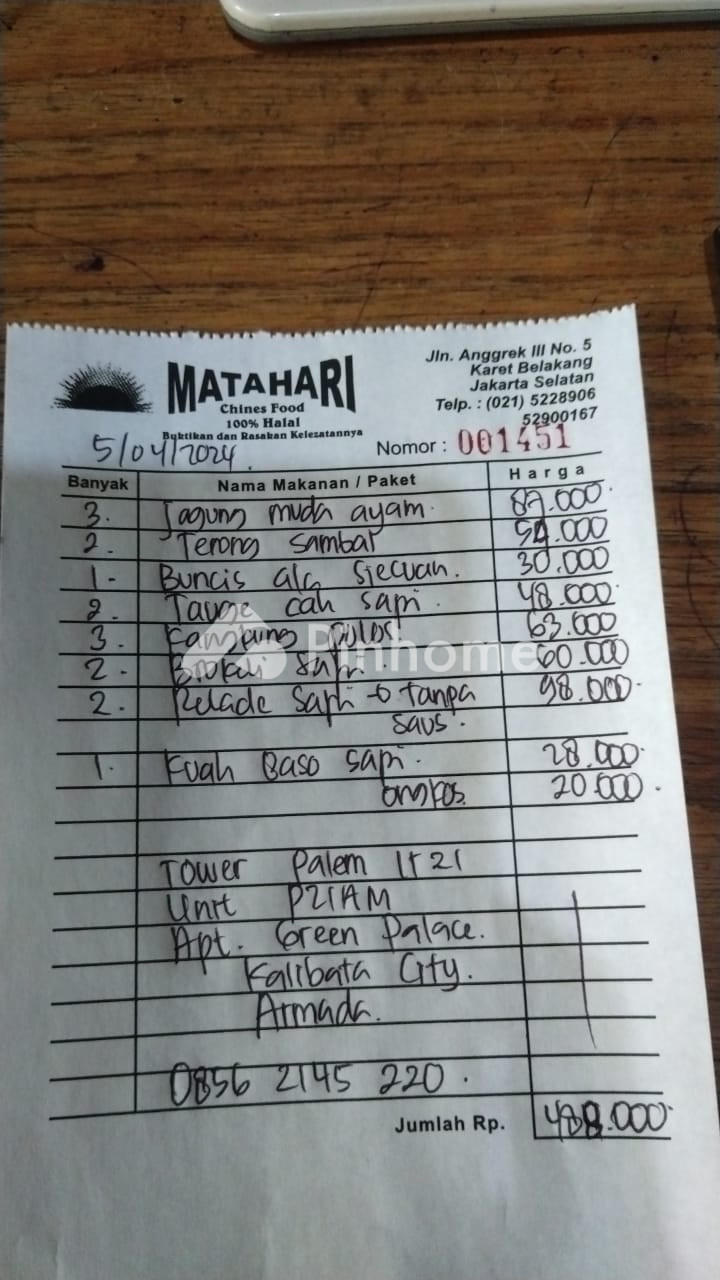 MATAHARI
Chines Food
100% Halal
Buktikan dan Rasakan Kelezatannya
Jln. Anggrek III No. 5
Karet Belakang
Jakarta Selatan
Telp. : (021) 5228906
52900167
5/04/2024.
Nomor : 001451
Banyak Nama Makanan / Paket Harga
3. Jagung muda ayam. 87.000
2. Terong sambal 54.000
1- Buncis ala sjecuan. 30.000
2. Tauge cah sapi. 48.000
3. polos 63.000
2. sapi. 60.000
2. Relade Sapi → tanpa 98.000
saus.
1. Kuah Baso sapi. 28.000
ongkos 20.000.
Tower Palem lt 21
Unit P21AM
Apt. Green Palace.
Kalibata City.
Armada.
0856 2145 220.
Jumlah Rp. 488.000
Pinhome